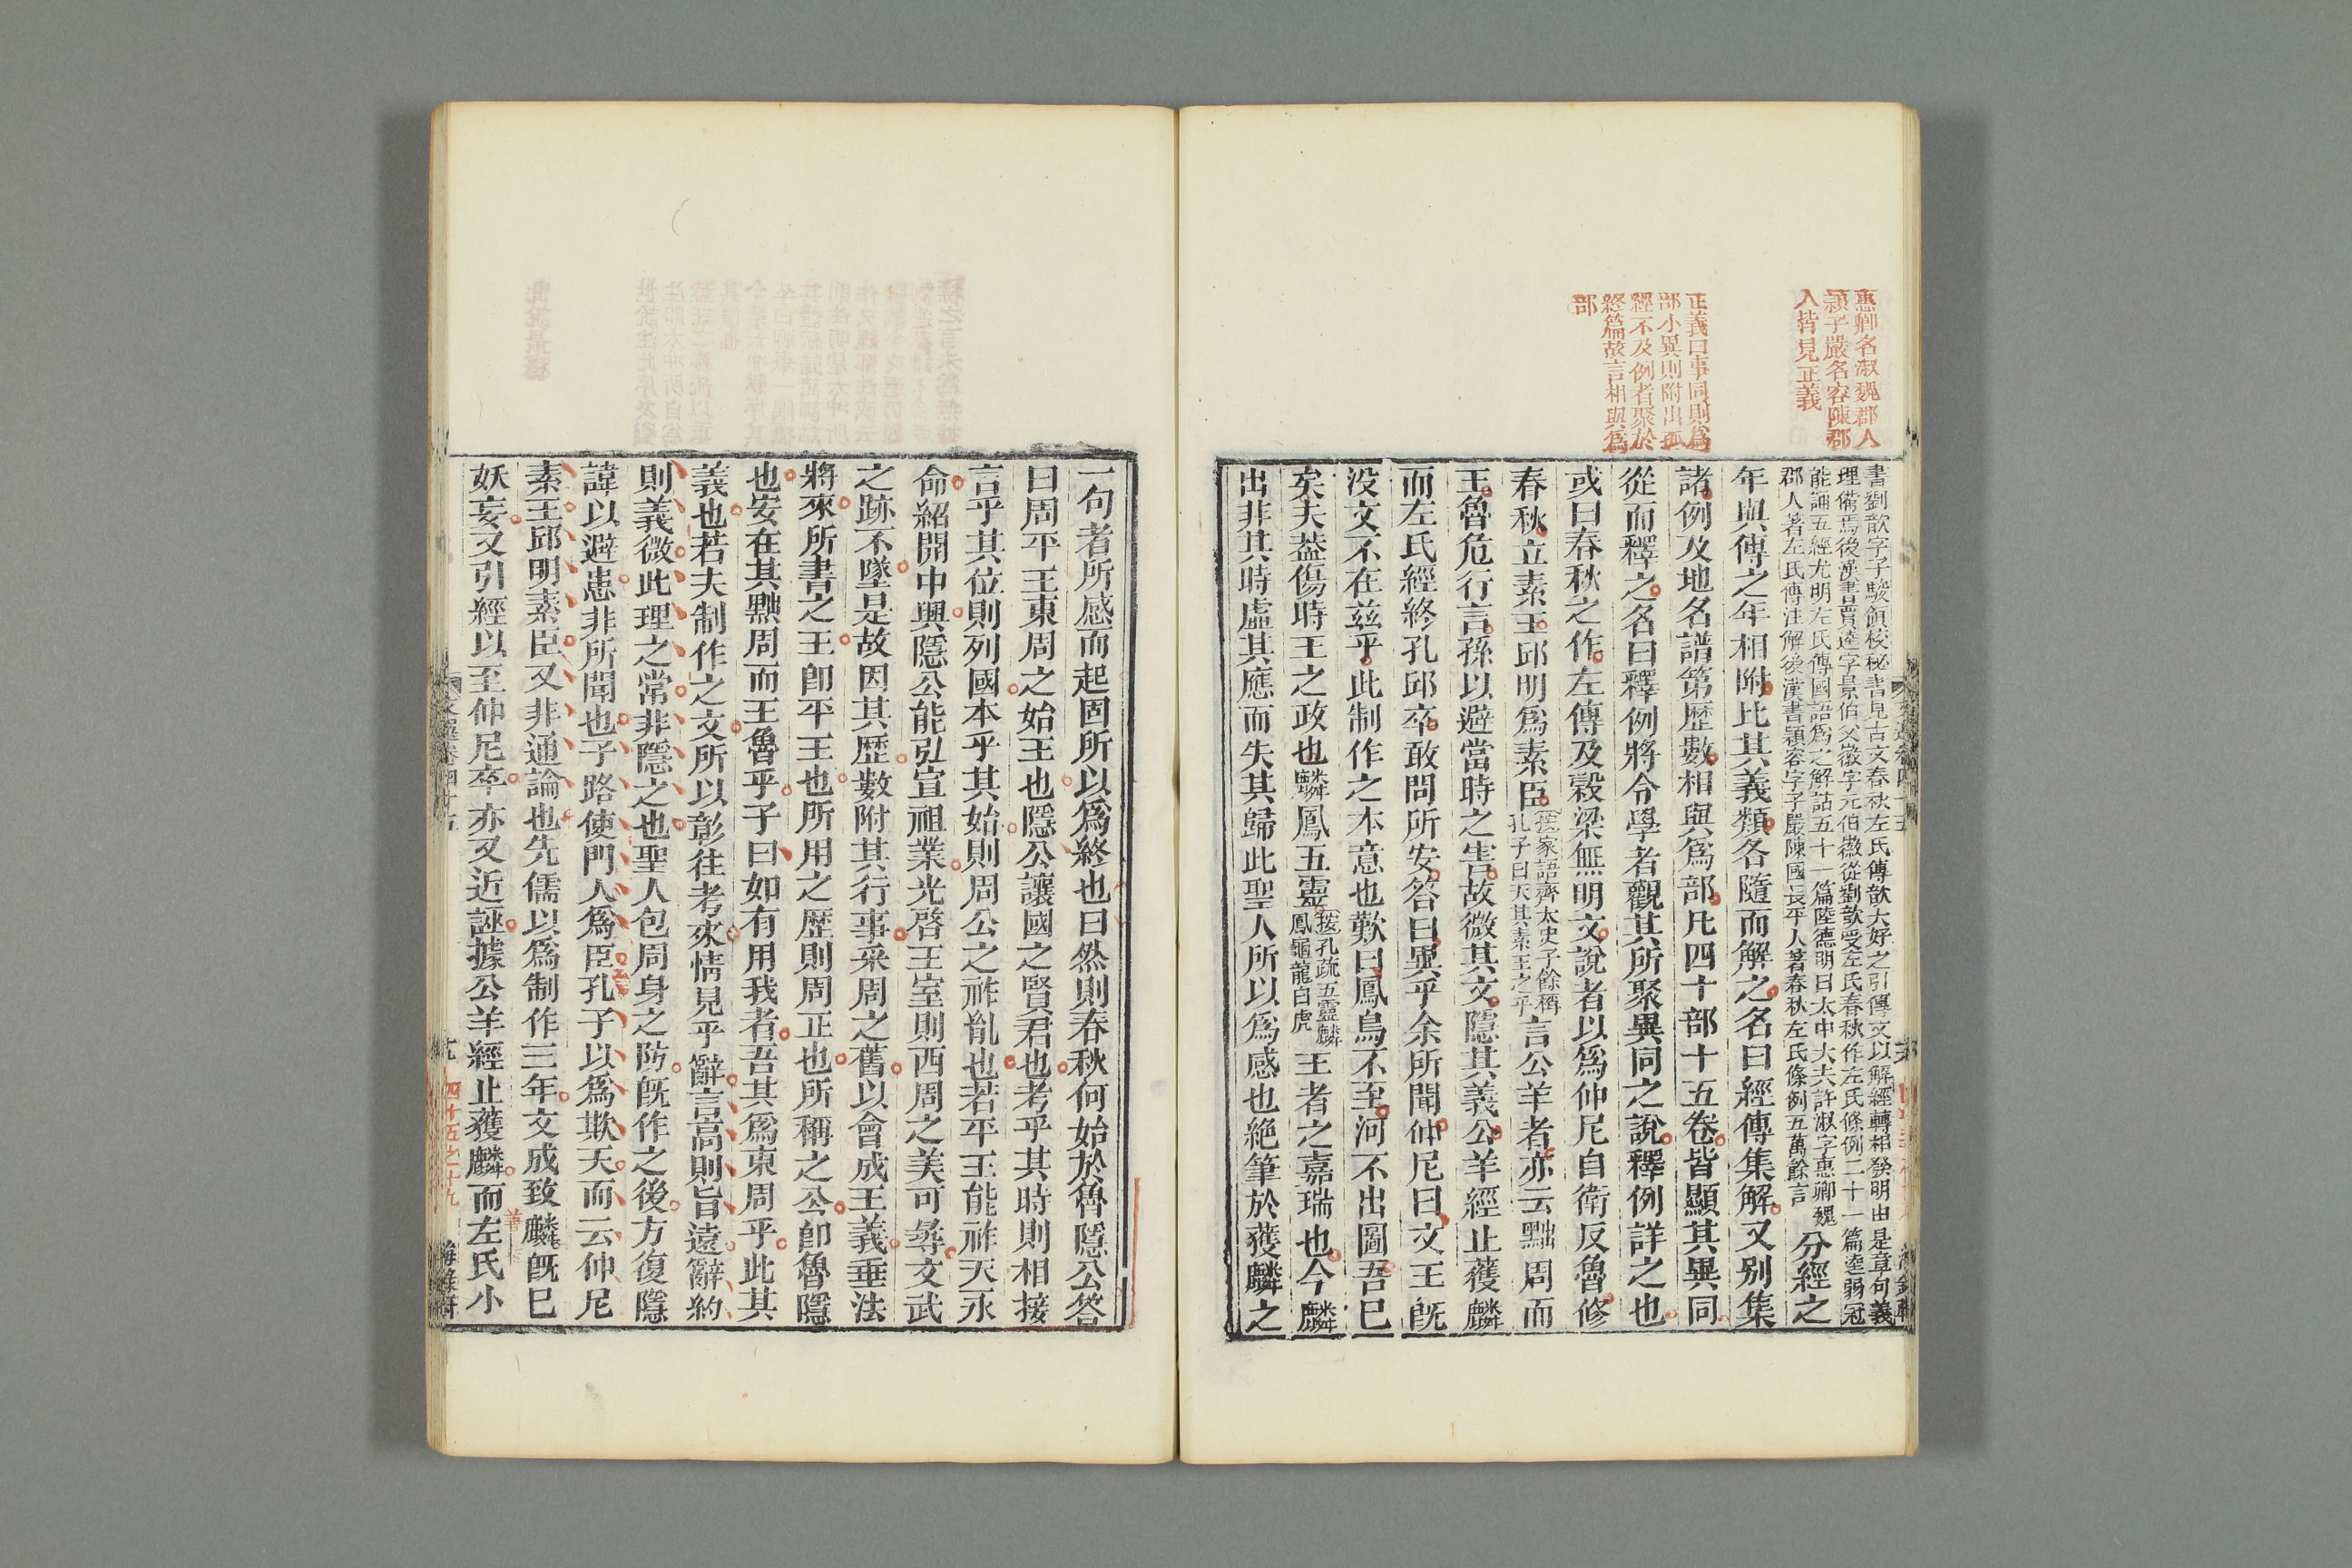 惠卿名淑魏郡人
潁子嚴名容陳郡
人皆見正義
正義曰事同則爲
部小異則附出孤
經不及例者聚於
終篇故言相與爲
部
書劉歆字子駿領校秘書見古文春秋左氏傳歆大好之引傳文以解經轉相發明由是章句義
理備焉後漢書賈逵字景伯父徽字元伯徽從劉歆受左氏春秋作左氏條例二十一篇逵弱冠
能誦五經尤明左氏傳國語爲之解詁五十一篇陸德明曰太中大夫許淑字惠卿魏
郡人著左氏傳注解後漢書潁容字子嚴陳國長平人著春秋左氏條例五萬餘言
分經之
年與傳之年相附比其義類各隨而解之名曰經傳集解又別集
諸例及地名譜第歷數相與爲部凡四十部十五卷皆顯其異同
從而釋之名曰釋例將令學者觀其所聚異同之說釋例詳之也
或曰春秋之作左傳及穀梁無明文說者以爲仲尼自衛反魯修
春秋立素王邱明爲素臣
按家語齊太史子餘稱
孔子曰天其素王之乎
言公羊者亦云黜周而
王魯危行言孫以避當時之害故微其文隱其義公羊經止獲麟
而左氏經終孔邱卒敢問所安答曰異乎余所聞仲尼曰文王旣
没文不在茲乎此制作之本意也歎曰鳳鳥不至河不出圖吾巳
矣夫葢傷時王之政也麟鳳五靈
按孔疏五靈麟
鳳龜龍白虎
王者之嘉瑞也今麟
出非其時虛其應而失其歸此聖人所以爲感也絶筆於獲麟之
一句者所感而起固所以爲終也曰然則春秋何始於魯隱公答
曰周平王東周之始王也隱公讓國之賢君也考乎其時則相接
言乎其位則列國本乎其始則周公之祚胤也若平王能祚天永
命紹開中興隱公能弘宣祖業光啓王室則西周之美可尋文武
之跡不墜是故因其歷數附其行事采周之舊以會成王義垂法
將來所書之王卽平王也所用之歷則周正也所稱之公卽魯隱
也安在其黜周而王魯乎子曰如有用我者吾其爲東周乎此其
義也若夫制作之文所以彰往考來情見乎辭言高則旨遠辭約
則義微此理之常非隱之也聖人包周身之防旣作之後方復隱
諱以避患非所聞也子路使門人爲臣孔子以爲欺天而云仲尼
素王邱明素臣又非通論也先儒以爲制作三年文成致麟旣巳
妖妄又引經以至仲尼卒亦又近誣據公羊經止獲麟而左氏小
四十五之十九
海錄軒